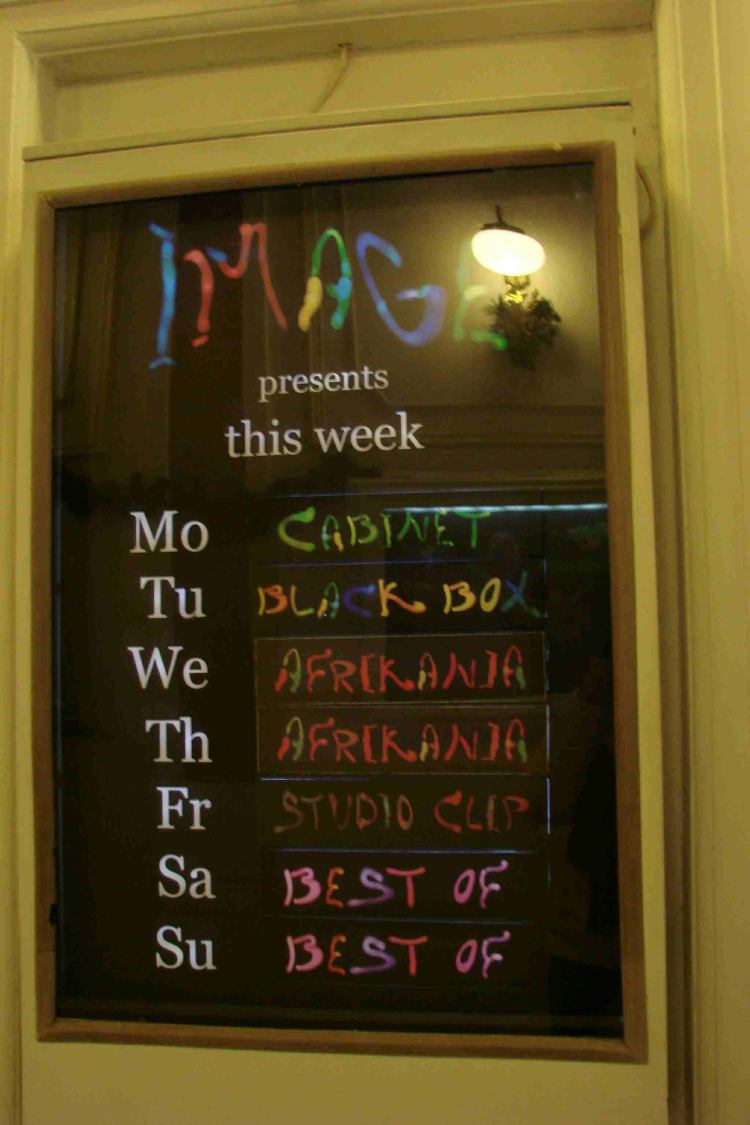 IMAGE
presents
this week
Mo CABINET
Tu BLACK BOX
We AFRIKANIA
Th AFRIKANIA
Fr STUDIO CLIP
Sa BEST OF
Su BEST OF